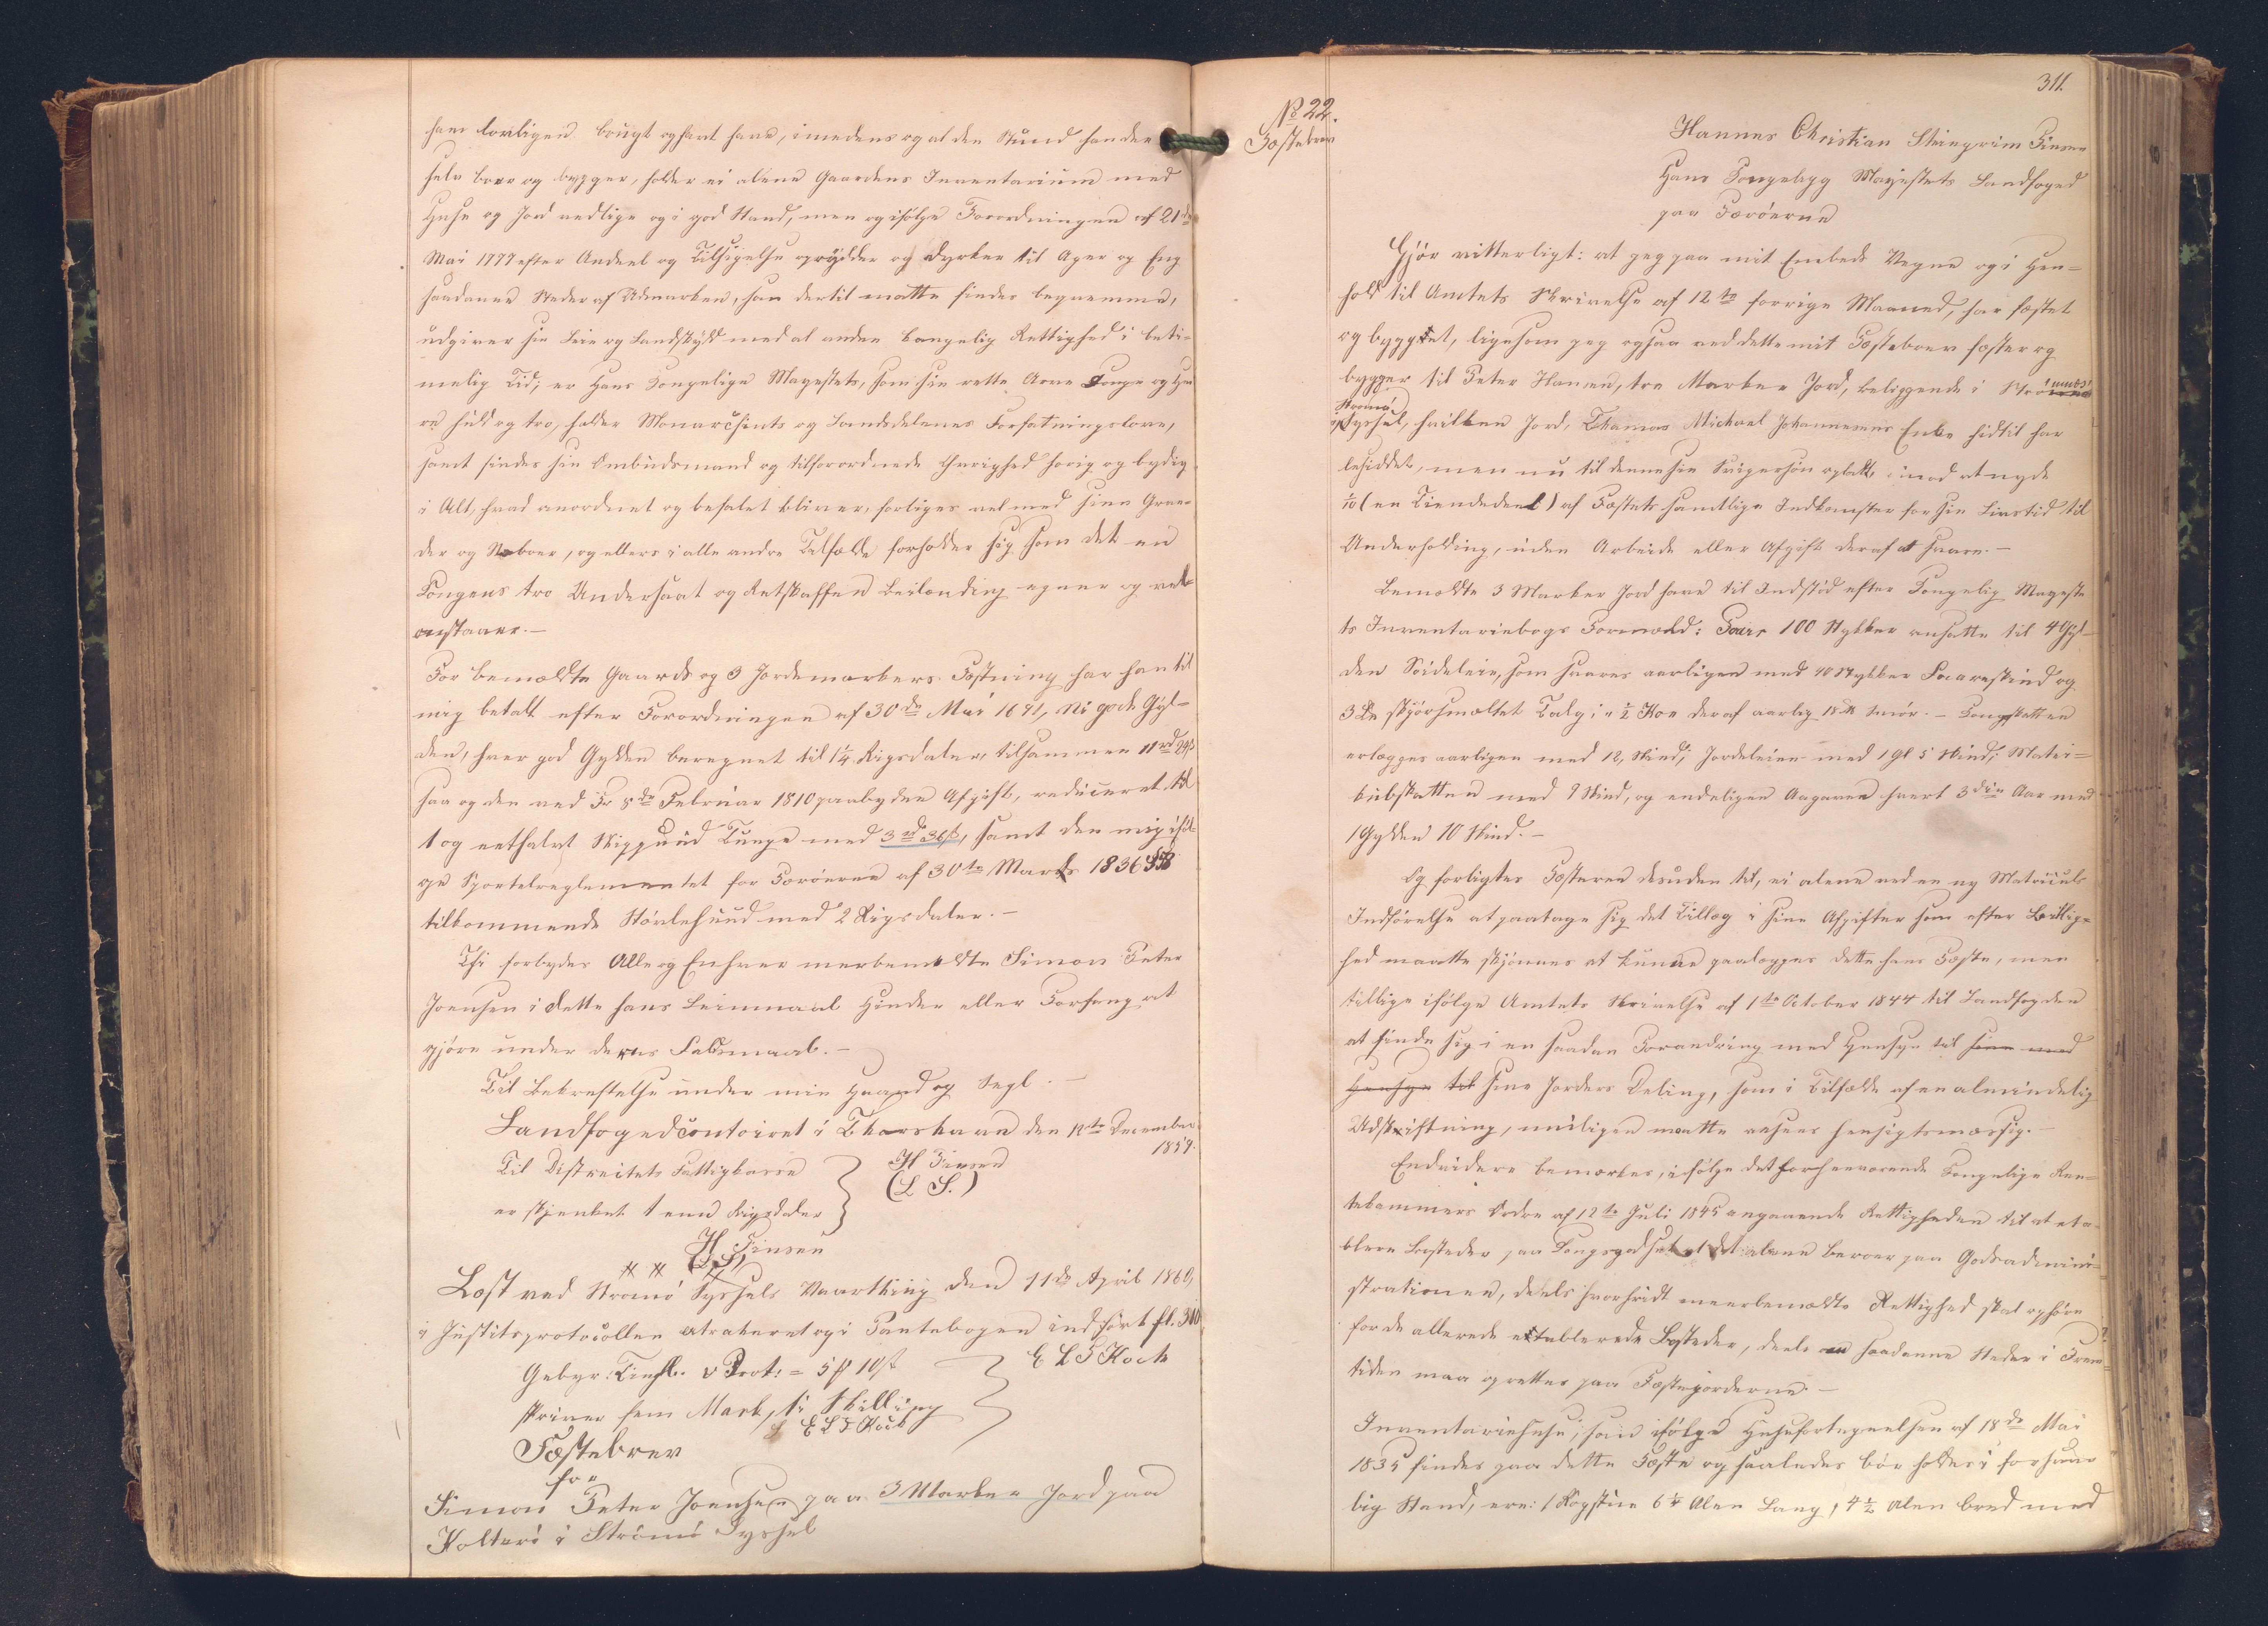 ham lovligen bruge og have, imedens og al den Stund han den
selv boer og bygger, holder ei alene Gaardens Inventarium med
Huse og Jord vedlige og i god Stand, men og ifølge Forordningen af 21de
Mai 1777 efter Andeel og Tilsigelse oprydder og dyrker til Ager og Eng
saadanne Steder af Udmarken, som dertil maatte findes beqvemme,
udgiver sin Leie og Landskyld med al anden kongelig Rettighed i beti-
melig Tid; er Hans Kongelige Majestets, som sin rette Arve Konge og Her
re huld og tro, holder Monarchiets og Landsdelenes Forfatningslove,
samt findes sin Ombudsmand og tilforordnede Øvrighed hørig og lydig
i Alt, hvad anordnet og befalet bliver, forliges vel med sine Gran-
der og Naboer, og ellers i alle andre Tilfælde forholder sig som det en
Kongens tro Undersaat og retskaffen Leilænding egner og vel
anstaaer.-
For bemældte Gaards og 3 Jordemarkers Fæstning har han til
mig betalt efter Forordningen af 30de Mai 1691, ni gode Gyl-
den, hver god Gylden beregnet til 1¼ Rigsdaler, tilsammen 11rd 24ß
saa og den ved Fr 8de Februar 1810 paabudne Afgift, reduceret til
1 og et halvt Skippund Tunge med 3rd 36ß, samt den mig iføl-
ge Sportelreglementet for Færøerne af 30te Marts 1836
tilkommende Støvlehund med 2 Rigsdaler.-
Thi forbydes Alle og Enhver merbemeldte Simon Peter
Joensen i dette hans Leiemaal Hinder eller Forfang at
gjøre under deres Faldsmaal.-
Til Bekræftelse under min Haand og Segl.-
Landfogedcontoiret i Thorshavn den 12te December
1859.
Til Districtets Fattigkasse
er skjenket 1 een Rigsdaler
H Finsen
(L. S.)
H Finsen
(L S)
Læst ved Strømø Syssels Vaarthing den 11te April 1860,
i Justitsprotocollen extraheret og i Pantebogen indført fl. 310
E L T Koch
Gebyr: Tingl. & Prot: = 5 ß 10 ß
skriver fem Mark, ti Skilling
E L T Koch
Fæstebrev
for
Simon Peter Joensen paa 3 Marker Jord paa
Kolterø i Strømø Syssel
311.
No 22.
Fæstebrev
Hannes Christian Steingrim Finsen
Hans Kongelige Majestets Landfoged
paa Færøerne
Gjør vitterligt: at jeg paa mit Embeds Vegne og i Hen-
hold til Amtets Skrivelse af 12te forrige Maaned, har fæstet
og bygget, ligesom jeg ogsaa ved dette mit Fæstebrev fæster og
bygger til Peter Hansen, tre Marker Jord, beliggende i
Strømø
Syssel, hvilken Jord, Thomas Michael Johannesens Enke hidtil har
besiddet, men nu til denne sin Svigersøn opladt, imod at nyde
1/10 (en Tiendedeel) af Fæstets samtlige Indkomster for sin Livstid til
Underholding, uden Arbeide eller Afgift deraf at svare.-
Bemældte 3 Marker Jord have til Indstød efter Kongelig Majeste
ts Inventariebogs Formeld: Faar 100 Stykker ansatte til 4 Gyl-
den Søideleie, som svares aarligen med 40 Stykker Faareskind og
3 Lb skjørsmeltet Talg; ½ Koe deraf aarlig 18 lb Smør.- Kongskatten
erlægges aarligen med 12 Skind; Jordeleien med 1 Gl 5 Skind; Matri-
kulskatten med 9 Skind, og endeligen Aagaven hvert 3die Aar med
1 Gylden 10 Skind.-
Og forligtes Fæsteren desuden til, ei alene ved en ny Matriculs
Indførelse at paatage sig det Tillæg i sine Afgifter som efter Billig-
hed maatte skjønnes at kunne paalægges dette hans Fæste, men
tillige ifølge Amtets Skrivelse af 1te October 1844 til Landfogden
at finde sig i en saadan Forandring med Hensyn til sine med
Hensyn til sine Jorders Deling, som i Tilfælde af en almindelig
Udskiftning, muligen maatte ansees hensigtsmæssig.-
Endvidere bemærkes, ifølge det forhenværende Kongelige Ren-
tekammers Ordre af 12te Juli 1845 angaaende Rettigheden til at eta-
blere Bosteder paa Kongsgodset at det alene beroer paa Godsadmini-
strationen, deels hvorvidt meerbemældte Rettighed skal ophøre
for de allerede etablerede Bosteder, deels om saadanne Steder i Frem-
tiden maa oprettes paa Fæstejorderne.-
Inventariehuse, som ifølge Husefortegnelsen af 18de Mai
1835 findes paa dette Fæste og saaledes bør holdes i forsvar-
lig Stand, ere: 1 Røgstue 6¼ Alen Lang, 4½ Alen bred med